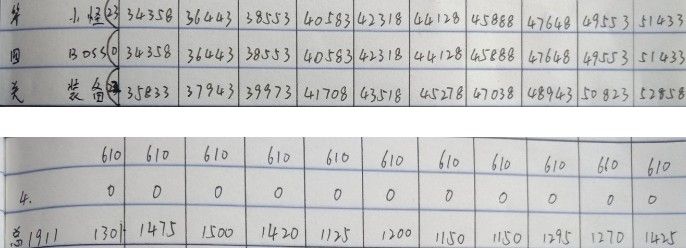 第 小怪(23 34358 36443 38553 40583 42318 44128 45888 47648 49553 51433
四 Boss(0 34358 36443 38553 40583 42318 44128 45888 47648 49553 51433
关 装备 35833 37943 39973 41708 43518 45278 47038 48943 50823 52858
610 610 610 610 610 610 610 610 610 610 610
4. 0 0 0 0 0 0 0 0 0 0 0
总1911 1301 1475 1500 1420 1125 1200 1150 1150 1295 1270 1425